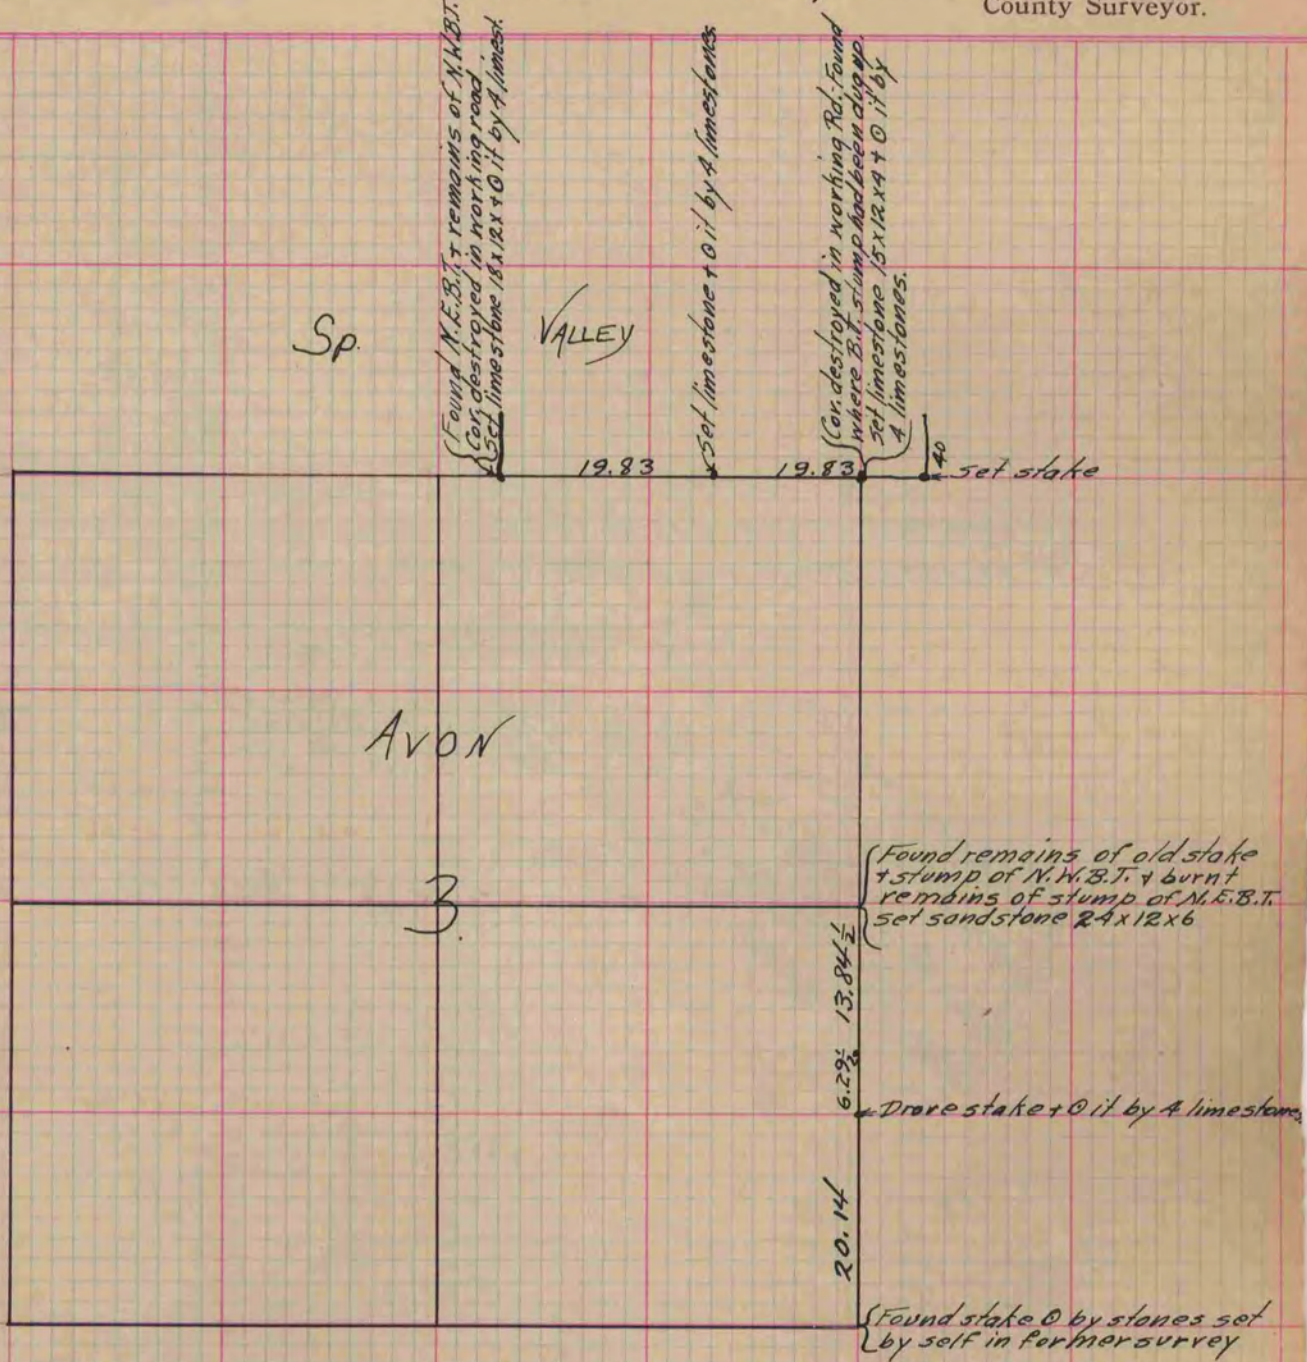 County Surveyor.
Found N.E.B.T. + remains of N.W.B.T.
Cor. destroyed in working road
Set limestone 18x12x4 ⊙ it by 4 limest.
Set limestone + ⊙ it by 4 limestones
Cor. destroyed in working Rd. Found
where B.T. stump had been dug up.
Set limestone 15x12x4 + ⊙ it by
4 limestones.
Sp. VALLEY
19.83
19.83
40
set stake
AVON
3.
Found remains of old stake
+ stump of N.W.B.T. + burnt
remains of stump of N.E.B.T.
set sandstone 24x12x6
13.84½
6.29½
Drove stake + ⊙ it by 4 limestones
20.14
Found stake ⊙ by stones set
by self in former survey